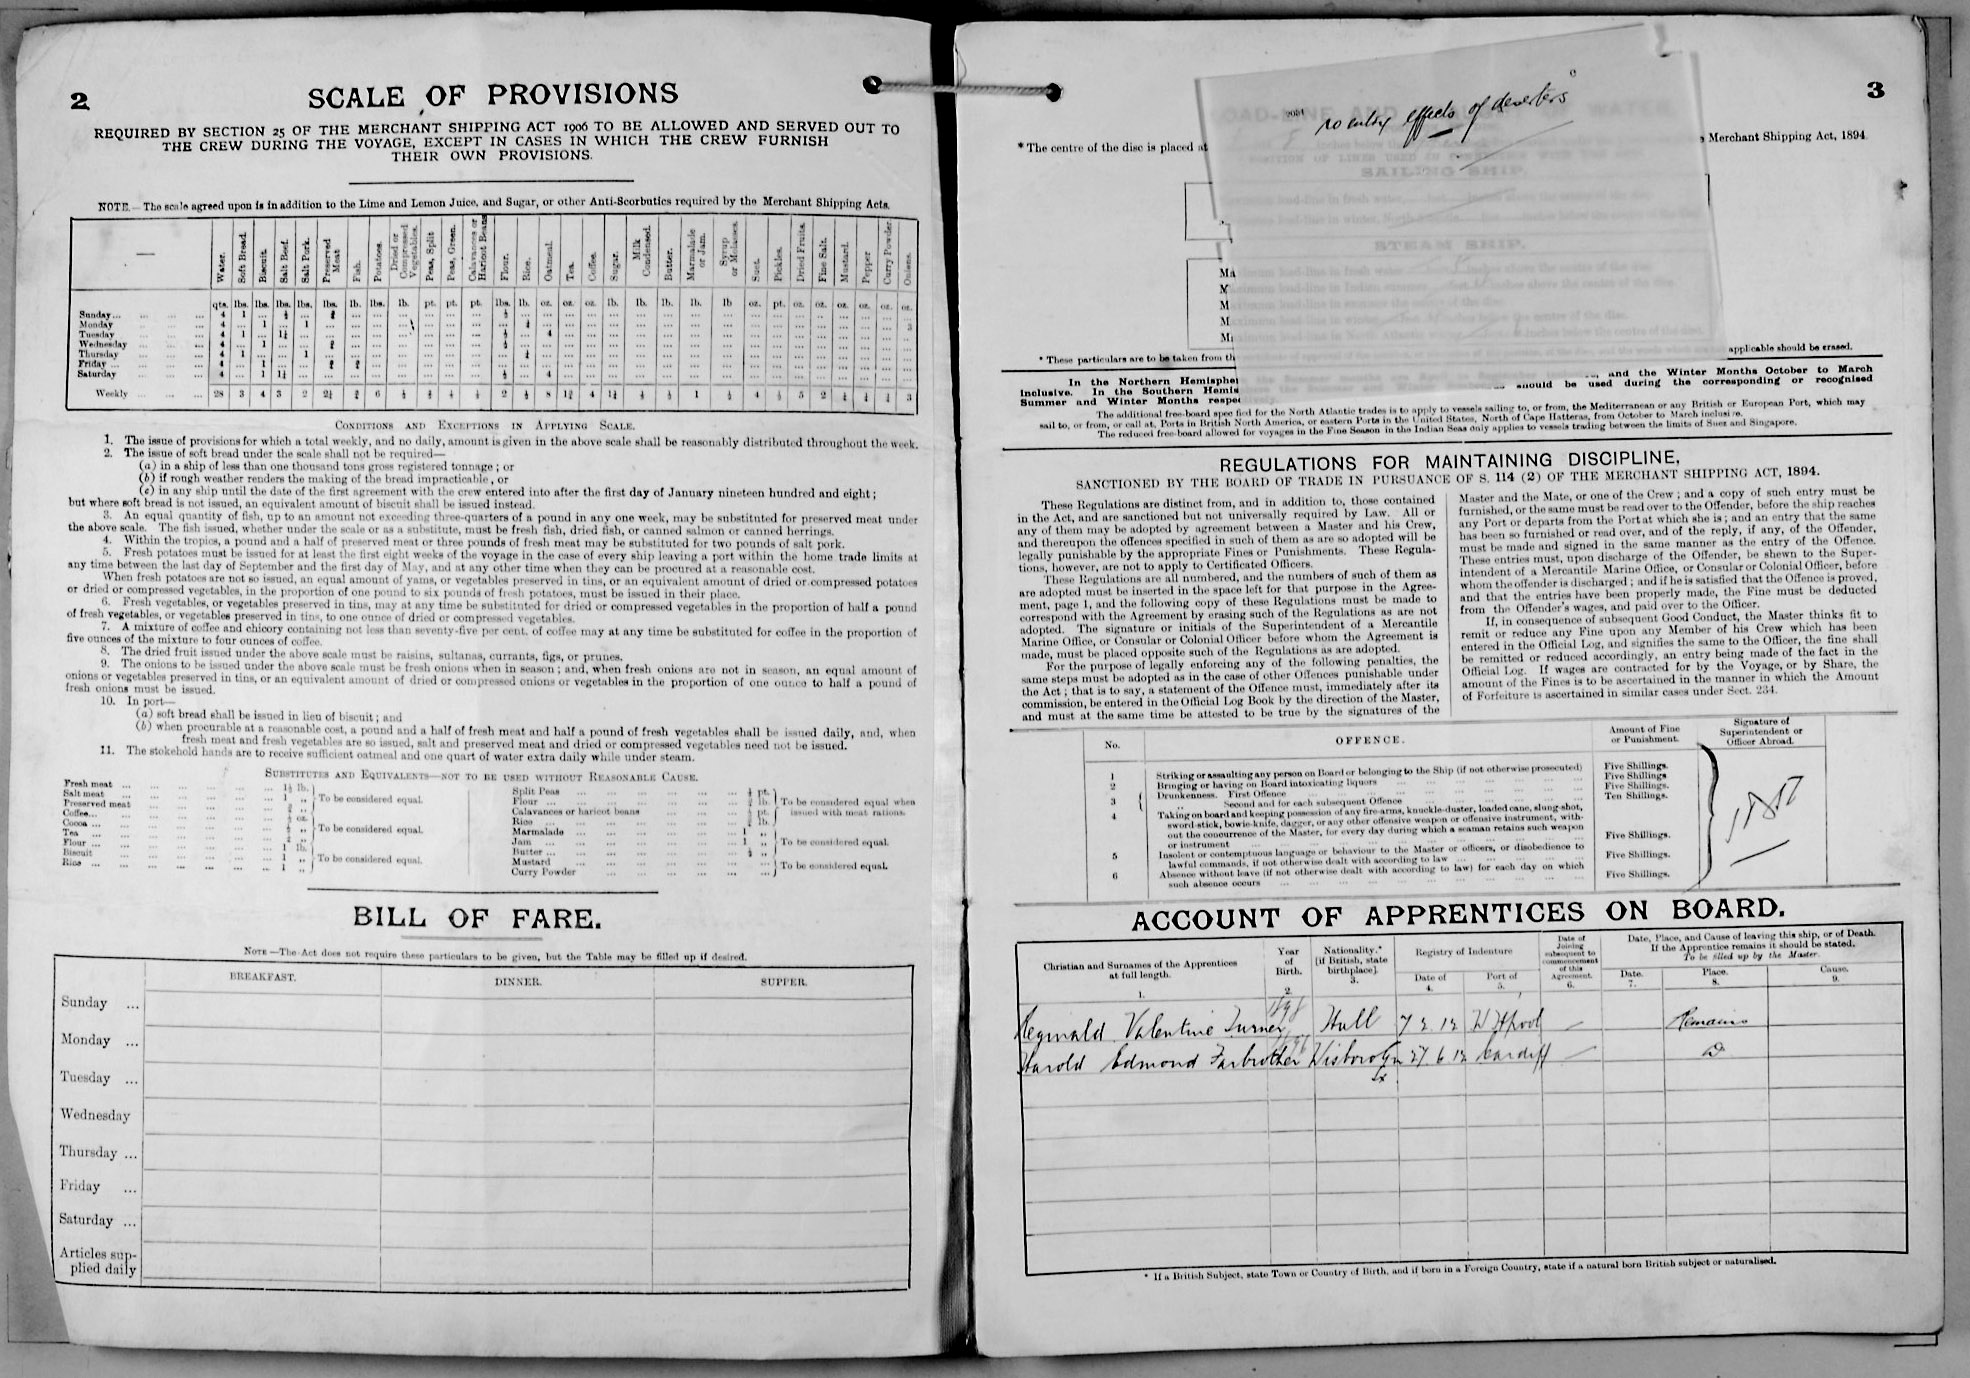 2
SCALE OF PROVISIONS
REQUIRED BY SECTION 25 OF THE MERCHANT SHIPPING ACT 1906 TO BE ALLOWED AND SERVED OUT TO
THE CREW DURING THE VOYAGE, EXCEPT IN CASES IN WHICH THE CREW FURNISH
THEIR OWN PROVISIONS.
NOTE.—The scale agreed upon is in addition to the Lime and Lemon Juice, and Sugar, or other Anti-Scorbutics required by the Merchant Shipping Acts.
Water. Soft Bread. Biscuit. Salt Beef. Salt Pork. Preserved Meat Fish. Potatoes. Dried or Compressed Vegetables. Peas, Split Peas, Green. Calavances or Haricot Beans Flour. Rice. Oatmeal. Tea. Coffee. Sugar. Milk Condensed. Butter. Marmalade or Jam. Syrup or Molasses. Suet. Pickles. Dried Fruits. Fine Salt. Mustard. Pepper Curry Powder Onions.
qts. lbs. lbs. lbs. lbs. lbs. lb. lbs. lb. pt. pt. pt. lbs. lb. oz. oz. oz. lb. lb. lb. lb. lb oz. pt. oz. oz. oz. oz. oz. oz.
Sunday... 4 1
Monday 4 1 1
Tuesday 4 1 1¼ 4
Wednesday 4 1
Thursday 4 1 1
Friday ... 4 1
Saturday 4 1 1¼ 4
Weekly 28 3 4 3 2 2¼ 6 2 8 1¾ 4 1¼ 1 4 5 2 3
CONDITIONS AND EXCEPTIONS IN APPLYING SCALE.
1. The issue of provisions for which a total weekly, and no daily, amount is given in the above scale shall be reasonably distributed throughout the week.
2. The issue of soft bread under the scale shall not be required—
(a) in a ship of less than one thousand tons gross registered tonnage; or
(b) if rough weather renders the making of the bread impracticable, or
(c) in any ship until the date of the first agreement with the crew entered into after the first day of January nineteen hundred and eight;
but where soft bread is not issued, an equivalent amount of biscuit shall be issued instead.
3. An equal quantity of fish, up to an amount not exceeding three-quarters of a pound in any one week, may be substituted for preserved meat under
the above scale. The fish issued, whether under the scale or as a substitute, must be fresh fish, dried fish, or canned salmon or canned herrings.
4. Within the tropics, a pound and a half of preserved meat or three pounds of fresh meat may be substituted for two pounds of salt pork.
5. Fresh potatoes must be issued for at least the first eight weeks of the voyage in the case of every ship leaving a port within the home trade limits at
any time between the last day of September and the first day of May, and at any other time when they can be procured at a reasonable cost.
When fresh potatoes are not so issued, an equal amount of yams, or vegetables preserved in tins, or an equivalent amount of dried or compressed potatoes
or dried or compressed vegetables, in the proportion of one pound to six pounds of fresh potatoes, must be issued in their place.
6. Fresh vegetables, or vegetables preserved in tins, may at any time be substituted for dried or compressed vegetables in the proportion of half a pound
of fresh vegetables, or vegetables preserved in tins, to one ounce of dried or compressed vegetables.
7. A mixture of coffee and chicory containing not less than seventy-five per cent. of coffee may at any time be substituted for coffee in the proportion of
five ounces of the mixture to four ounces of coffee.
8. The dried fruit issued under the above scale must be raisins, sultanas, currants, figs, or prunes.
9. The onions to be issued under the above scale must be fresh onions when in season; and, when fresh onions are not in season, an equal amount of
onions or vegetables preserved in tins, or an equivalent amount of dried or compressed onions or vegetables in the proportion of one ounce to half a pound of
fresh onions must be issued.
10. In port—
(a) soft bread shall be issued in lieu of biscuit; and
(b) when procurable at a reasonable cost, a pound and a half of fresh meat and half a pound of fresh vegetables shall be issued daily, and, when
fresh meat and fresh vegetables are so issued, salt and preserved meat and dried or compressed vegetables need not be issued.
11. The stokehold hands are to receive sufficient oatmeal and one quart of water extra daily while under steam.
SUBSTITUTES AND EQUIVALENTS—NOT TO BE USED WITHOUT REASONABLE CAUSE.
Fresh meat 1½ lb.
Salt meat 1 „ To be considered equal.
Preserved meat „
Coffee... oz.
Cocoa ... „ To be considered equal.
Tea „
Flour ... 1 lb.
Biscuit 1 „ To be considered equal.
Rice ... 1 „
Split Peas pt.
Flour ... lb. To be considered equal when
Calavances or haricot beans pt. issued with meat rations.
Rice lb.
Marmalade 1 „
Jam 1 „ To be considered equal.
Butter ... „
Mustard To be considered equal.
Curry Powder
BILL OF FARE.
NOTE—The Act does not require these particulars to be given, but the Table may be filled up if desired.
BREAKFAST. DINNER. SUPPER.
Sunday ...
Monday ...
Tuesday ...
Wednesday
Thursday ...
Friday ...
Saturday ...
Articles sup-
plied daily
3
2051 no entry effects of deserters
* The centre of the disc is placed at
Merchant Shipping Act, 1894.
SAILING SHIP.
STEAM SHIP.
* These particulars are to be taken from th
applicable should be erased.
In the Northern Hemispher and the Winter Months October to March
inclusive. In the Southern Hemis should be used during the corresponding or recognised
Summer and Winter Months respec
The additional free-board specified for the North Atlantic trades is to apply to vessels sailing to, or from, the Mediterranean or any British or European Port, which may
sail to, or from, or call at, Ports in British North America, or eastern Ports in the United States, North of Cape Hatteras, from October to March inclusive.
The reduced free-board allowed for voyages in the Fine Season in the Indian Seas only applies to vessels trading between the limits of Suez and Singapore.
REGULATIONS FOR MAINTAINING DISCIPLINE,
SANCTIONED BY THE BOARD OF TRADE IN PURSUANCE OF S. 114 (2) OF THE MERCHANT SHIPPING ACT, 1894.
These Regulations are distinct from, and in addition to, those contained
in the Act, and are sanctioned but not universally required by Law. All or
any of them may be adopted by agreement between a Master and his Crew,
and thereupon the offences specified in such of them as are so adopted will be
legally punishable by the appropriate Fines or Punishments. These Regula-
tions, however, are not to apply to Certificated Officers.
These Regulations are all numbered, and the numbers of such of them as
are adopted must be inserted in the space left for that purpose in the Agree-
ment, page 1, and the following copy of these Regulations must be made to
correspond with the Agreement by erasing such of the Regulations as are not
adopted. The signature or initials of the Superintendent of a Mercantile
Marine Office, or Consular or Colonial Officer before whom the Agreement is
made, must be placed opposite such of the Regulations as are adopted.
For the purpose of legally enforcing any of the following penalties, the
same steps must be adopted as in the case of other Offences punishable under
the Act; that is to say, a statement of the Offence must, immediately after its
commission, be entered in the Official Log Book by the direction of the Master,
and must at the same time be attested to be true by the signatures of the
Master and the Mate, or one of the Crew; and a copy of such entry must be
furnished, or the same must be read over to the Offender, before the ship reaches
any Port or departs from the Port at which she is; and an entry that the same
has been so furnished or read over, and of the reply, if any, of the Offender,
must be made and signed in the same manner as the entry of the Offence.
These entries must, upon discharge of the Offender, be shewn to the Super-
intendent of a Mercantile Marine Office, or Consular or Colonial Officer, before
whom the offender is discharged; and if he is satisfied that the Offence is proved,
and that the entries have been properly made, the Fine must be deducted
from the Offender's wages, and paid over to the Officer.
If, in consequence of subsequent Good Conduct, the Master thinks fit to
remit or reduce any Fine upon any Member of his Crew which has been
entered in the Official Log, and signifies the same to the Officer, the fine shall
be remitted or reduced accordingly, an entry being made of the fact in the
Official Log. If wages are contracted for by the Voyage, or by Share, the
amount of the Fines is to be ascertained in the manner in which the Amount
of Forfeiture is ascertained in similar cases under Sect. 234.
No. OFFENCE. Amount of Fine or Punishment. Signature of Superintendent or Officer Abroad.
1 Striking or assaulting any person on Board or belonging to the Ship (if not otherwise prosecuted) Five Shillings.
2 Bringing or having on Board intoxicating liquors Five Shillings
3 Drunkenness. First Offence Five Shillings.
„ Second and for each subsequent Offence Ten Shillings.
4 Taking on board and keeping possession of any fire-arms, knuckle-duster, loaded cane, slung-shot,
sword-stick, bowie-knife, dagger, or any other offensive weapon or offensive instrument, with-
out the concurrence of the Master, for every day during which a seaman retains such weapon
or instrument Five Shillings.
5 Insolent or contemptuous language or behaviour to the Master or officers, or disobedience to
lawful commands, if not otherwise dealt with according to law Five Shillings.
6 Absence without leave (if not otherwise dealt with according to law) for each day on which
such absence occurs Five Shillings.
ACCOUNT OF APPRENTICES ON BOARD.
Christian and Surnames of the Apprentices at full length. 1.
Year of Birth. 2.
Nationality.* [if British, state birthplace]. 3.
Registry of Indenture
Date of 4.
Port of 5.
Date of Joining subsequent to commencement of this Agreement. 6.
Date, Place, and Cause of leaving this ship, or of Death.
If the Apprentice remains it should be stated.
To be filled up by the Master.
Date. 7.
Place. 8.
Cause. 9.
Reginald Valentine Turner 1898 Hull 7 2. 12 W Hpool — Remains
Harold Edmond Farbrother 1896 Wisboro Gn Sx 27. 6 12 Cardiff — Do
* If a British Subject, state Town or Country of Birth, and if born in a Foreign Country, state if a natural born British subject or naturalised.